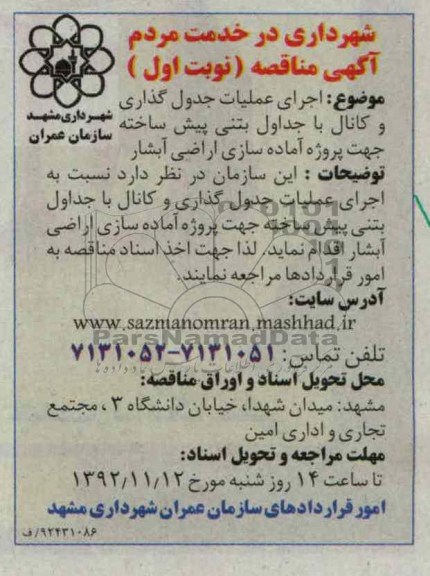 شهرداری در خدمت مردم
آگهی مناقصه (نوبت اول)
شهرداری مشهد
سازمان عمران
موضوع: اجرای عملیات جدول گذاری
و کانال با جداول بتنی پیش ساخته
جهت پروژه آماده سازی اراضی آبشار
توضیحات : این سازمان در نظر دارد نسبت به
اجرای عملیات جدول گذاری و کانال با جداول
بتنی پیش ساخته جهت پروژه آماده سازی اراضی
آبشار اقدام نماید. لذا جهت اخذ اسناد مناقصه به
امور قراردادها مراجعه نمایند.
آدرس سایت:
www.sazmanomran.mashhad.ir
ParsNamadData
تلفن تماس: ۷۱۳۱۰۵۱-۷۱۳۱۰۵۲
محل تحویل اسناد و اوراق مناقصه:
مشهد: میدان شهدا، خیابان دانشگاه ۳ ، مجتمع
تجاری و اداری امین
مهلت مراجعه و تحویل اسناد:
تا ساعت ۱۴ روز شنبه مورخ ۱۳۹۲/۱۱/۱۲
امور قراردادهای سازمان عمران شهرداری مشهد
۹۲۴۳۱۰۸۶/ف